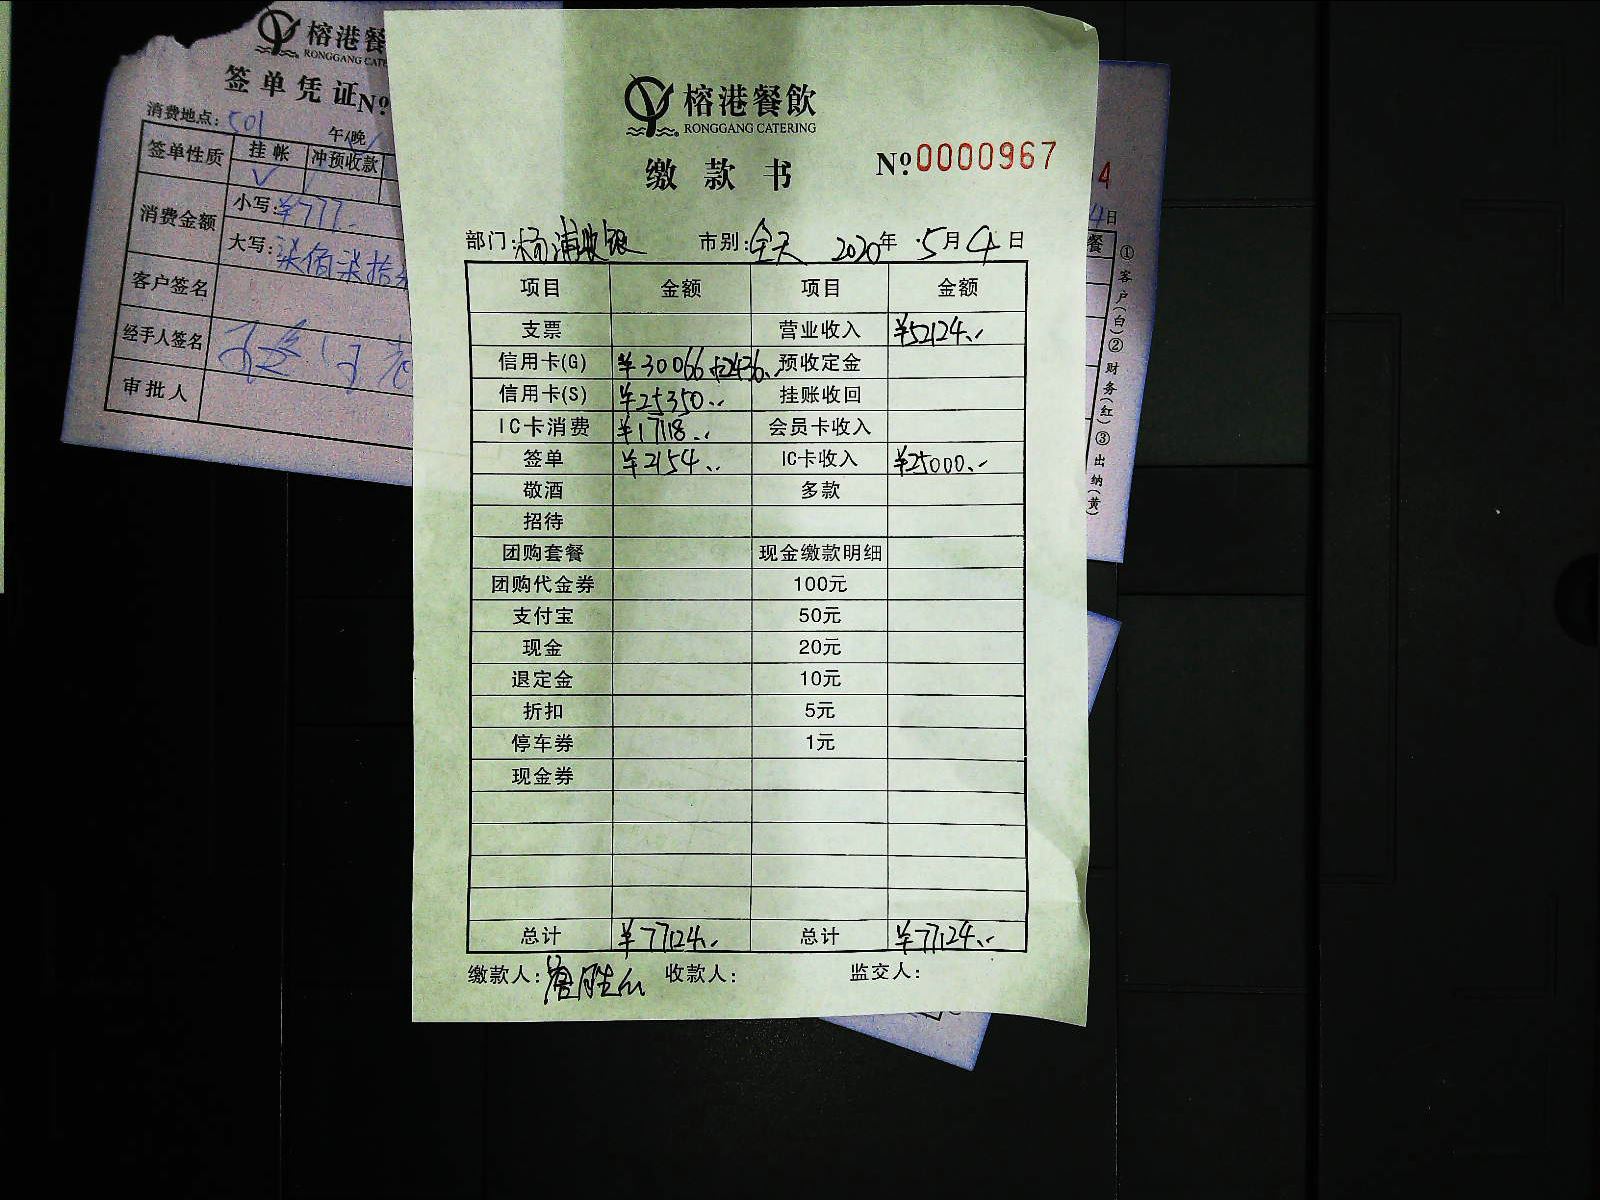 榕港餐
RONGGANG CATE
签单凭证 №
消费地点: 501 午/晚
签单性质 挂帐 冲预收款
✓
消费金额 小写: ¥777.
大写: 柒佰柒拾
客户签名
经手人签名
审批人
榕港餐飲
RONGGANG CATERING
缴款书 №0000967
部门: 杨浦收银 市别: 全天 2020年 5月 4日
项目 金额 项目 金额
支票 营业收入 ¥52124.
信用卡(G) ¥30066.+2436. 预收定金
信用卡(S) ¥25350. 挂账收回
IC卡消费 ¥17118. 会员卡收入
签单 ¥2154. IC卡收入 ¥25000.
敬酒 多款
招待
团购套餐 现金缴款明细
团购代金券 100元
支付宝 50元
现金 20元
退定金 10元
折扣 5元
停车券 1元
现金券
总计 ¥77124. 总计 ¥77124.
缴款人: 收款人: 监交人:
4
4日
餐
①客户(白)②财务(红)③出纳(黄)